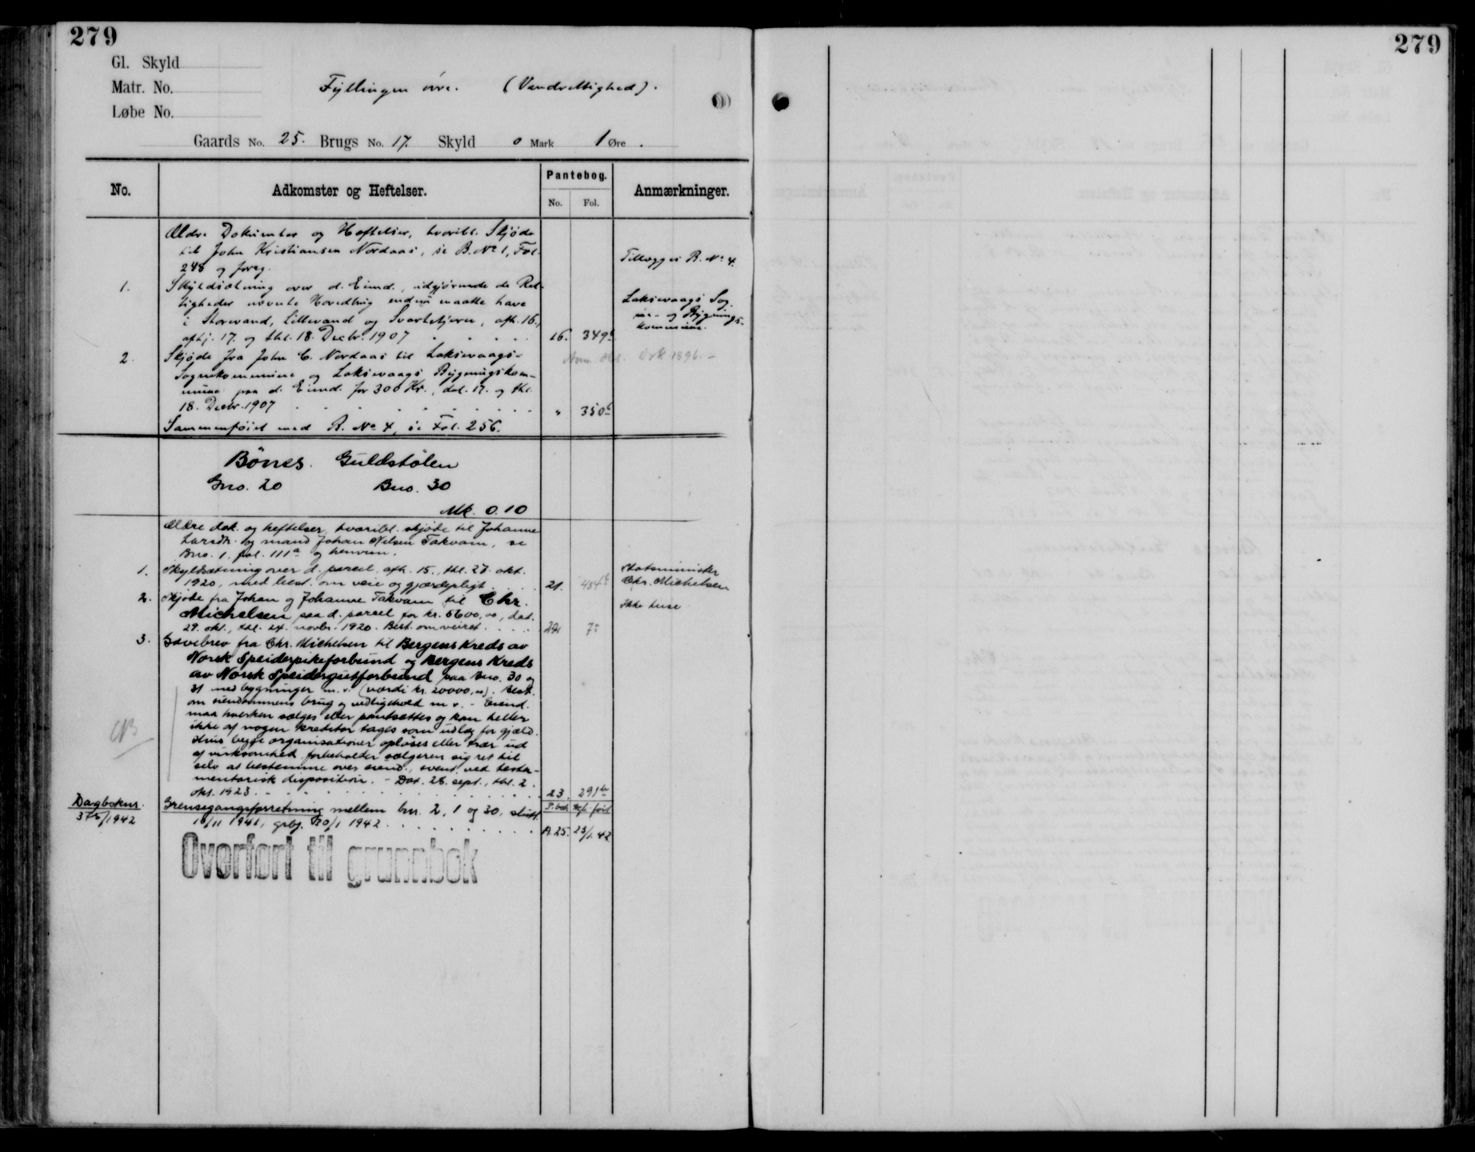 279
279
Gl. Skyld
Matr. No.
Fyllingen övre. (Vandrettighed).
Løbe No.
Gaards No. 25. Brugs No. 17. Skyld 0 Mark 1 Øre.
No.
Adkomster og Heftelser.
Pantebog.
No. Fol.
Anmærkninger.
Ældre Dokumenter og Heftelser, hvoribl. Skjøde
til John Kristiansen Nordaas, se B. No 1, Fol.
248 og foreg.
Tillægges B. No 4.
1. Skyldsætning over d. Eiend., udgjørende de Ret-
tigheder nævnte Hovedbrug endnu maatte have
i Storevand, Lillevand og Svartetjern, afh. 16.,
afhj. 17. og thl. 18. Decbr. 1907 16. 349b
Laksevaags Sog-
ne- og Bygnings-
kommune.
2. Skjøde fra John C. Nordaas til Laksevaags
Sognekommune og Laksevaags Bygningskom-
mune paa d. Eiend. for 300 Kr., dat. 17. og thl.
18. Decbr. 1907 " 350b
Sammenføiet med B. No 4, se Fol. 256.
Bönes. Guldstölen
Gno. 20 Bno. 30
Mk. 0.10
Ældre dok. og heftelser, hvoribl. skjøte til Johanne
Larsdtr. og mand Johan Nilsen Takvam, se
Bno. 1, fol. 111a og henvisn.
1. Skyldsætning over d. parcel, afh. 15., thl. 27. okt.
1920, med best. om veie og gjærdepligt. 21. 454b
Statsminister
Chr. Michelsen
2. Skjøte fra Johan og Johanne Takvam til Chr.
Michelsen paa d. parcel for kr. 5600,00, dat.
29. okt., thl. 24. novbr. 1920. Best. om veiret.
Ikke huse
3. Gavebrev fra Chr. Michelsen til Bergens Kreds av
Norsk Speiderpikeforbund og Bergens Kreds
av Norsk Speidergutforbund paa bno. 30 og
31 med bygninger m.v. (værdi kr. 20000,00). Best.
om eiendommens brug og vedligehold m.v. - Eiend.
maa hverken sælges eller pantsettes og kan heller
ikke af nogen kreditor tages som utlæg for gjæld.
Hvis begge organisationer opløses eller trær ud
af virksomhed, forbeholder sælgeren sig ret til
selv at bestemme over eiend., event. ved testa-
mentarisk disposition. - Dat. 28. sept., thl. 2.
okt. 1923 23. 291b
NB
Dagboknr.
1942
Grensegangsforretning mellem bnr. 2, 1 og 30, sluttet
1941, 1942 A.25.
Overført til grunnbok